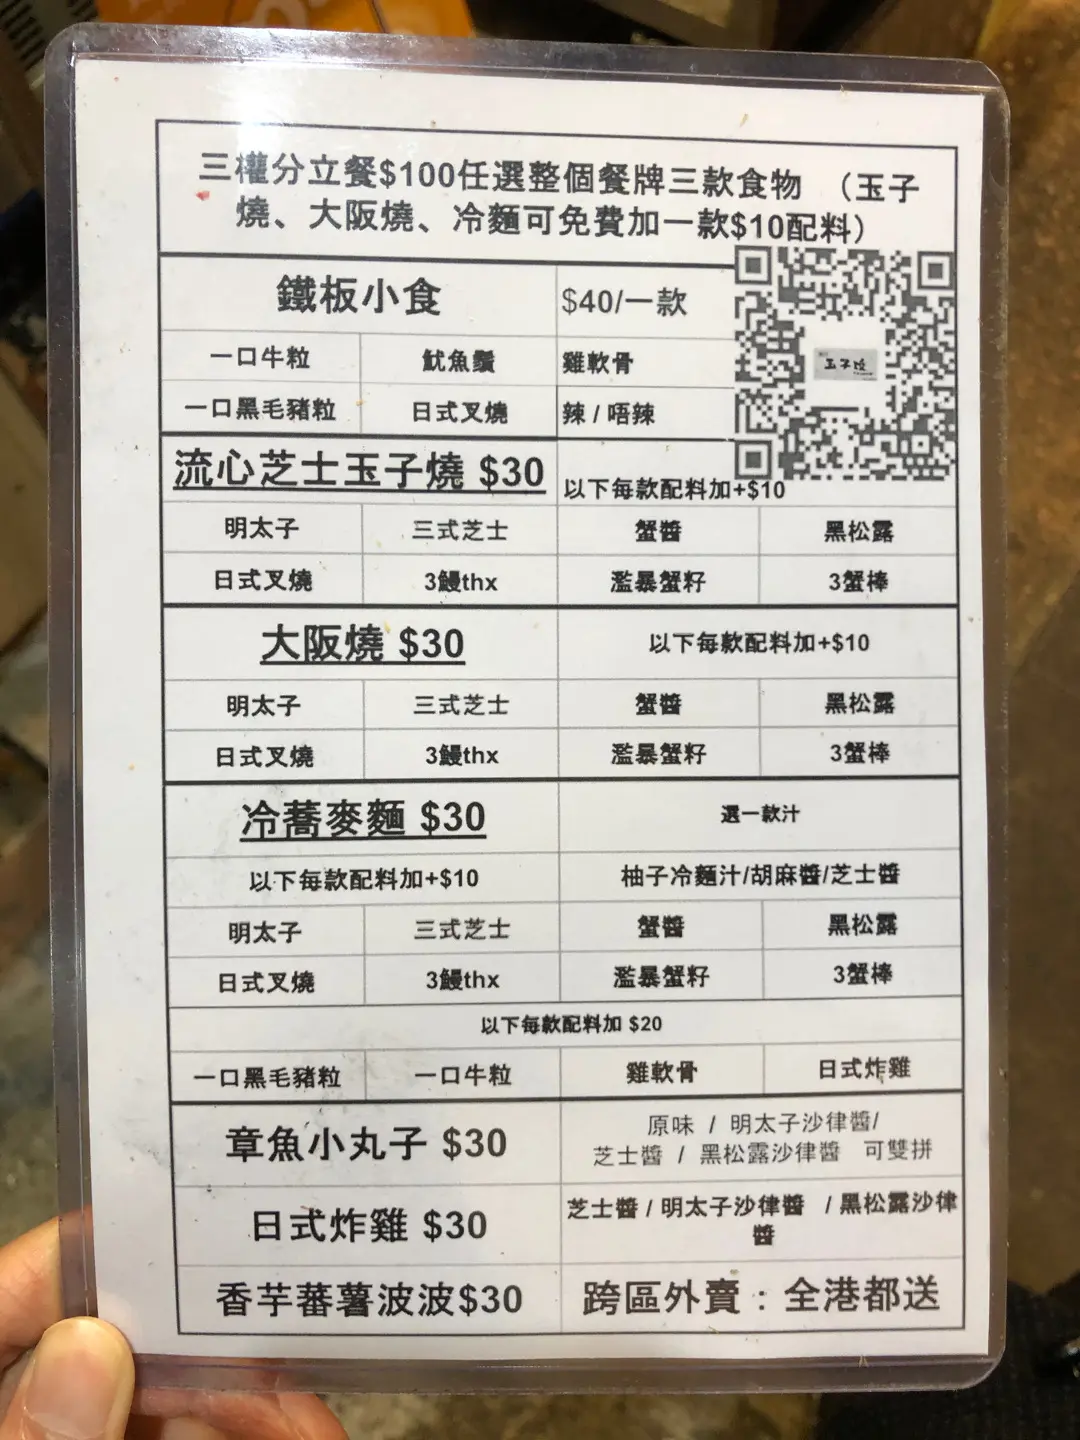 三權分立餐$100任選整個餐牌三款食物 （玉子
燒、大阪燒、冷麵可免費加一款$10配料）
鐵板小食 $40/一款
一口牛粒 魷魚鬚 雞軟骨
一口黑毛豬粒 日式叉燒 辣 / 唔辣
玉子燒
流心芝士玉子燒 $30 以下每款配料加+$10
明太子 三式芝士 蟹醬 黑松露
日式叉燒 3鰻thx 濫暴蟹籽 3蟹棒
大阪燒 $30 以下每款配料加+$10
明太子 三式芝士 蟹醬 黑松露
日式叉燒 3鰻thx 濫暴蟹籽 3蟹棒
冷蕎麥麵 $30 選一款汁
以下每款配料加+$10 柚子冷麵汁/胡麻醬/芝士醬
明太子 三式芝士 蟹醬 黑松露
日式叉燒 3鰻thx 濫暴蟹籽 3蟹棒
以下每款配料加 $20
一口黑毛豬粒 一口牛粒 雞軟骨 日式炸雞
章魚小丸子 $30 原味 / 明太子沙律醬/
芝士醬 / 黑松露沙律醬 可雙拼
日式炸雞 $30 芝士醬 / 明太子沙律醬 / 黑松露沙律
醬
香芋蕃薯波波$30 跨區外賣：全港都送